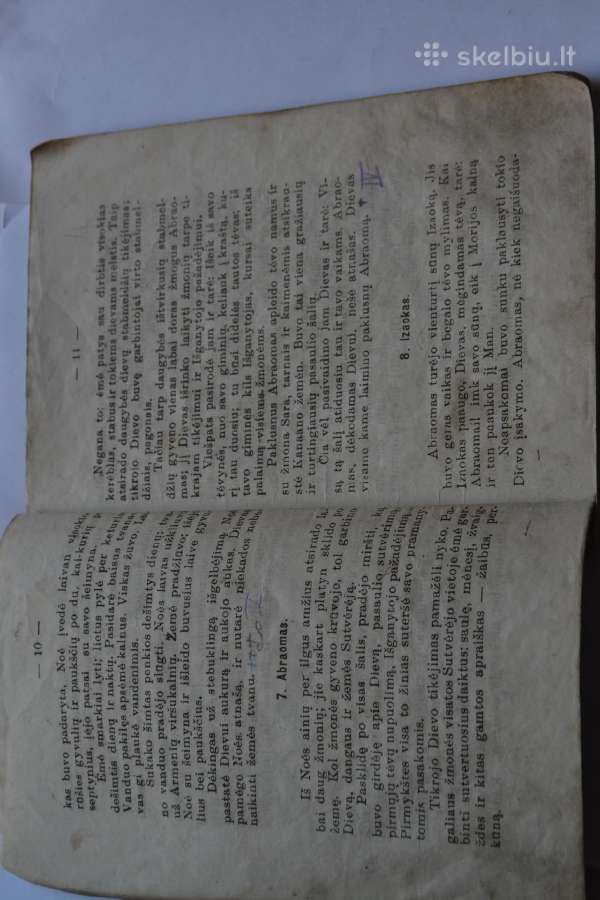 skelbiu.lt
— 10 —
kas buvo padaryta, Noė įvedė laivan visokios
rūšies gyvulių ir paukščių po du, kai-kurių po
septynius, įėjo patsai su savo šeimyna.
Ėmė smarkiai lyti; lietus pylė per keturias
dešimtis dienų ir naktų. Pasidarė baisus tvanas.
Vanduo pakilęs apsėmė kalnus. Viskas žuvo,
vas gi plaukė vandenimis.
Sukako šimtas penkios dešimtys dienų;
no vanduo pradėjo slūgti. Noės laivas užkliuvo
už Armėnų viršukalnių. Žemė pradžiuvo;
Noė su šeimyna ir išleido buvusius laive gyvu-
lius bei paukščius.
Dėkingas už stebuklingą išgelbėjimą, Noė
pastatė Dievui aukurą ir aukojo aukas. Dievas
pamėgo Noės atnašą, ir nutarė niekados nebe
naikinti žemės tvanu.
7. Abraomas.
Iš Noės ainių per ilgus amžius atsirado la-
bai daug žmonių; jie kaskart platyn sklido po
žemę. Kol žmonės gyveno krūvoje, tol garbino
Dievą, dangaus ir žemės Sutvėrėją.
Pasklidę po visas šalis, pradėjo miršti, ką
buvo girdėję apie Dievą, pasaulio sutvėrimą,
pirmųjų tėvų nupuolimą, Išganytojo pažadėjimą.
Pirmykštes visa to žinias suteršė savo pramany-
tomis pasakomis.
Tikrojo Dievo tikėjimas pamažėli nyko. Pa-
galiaus žmonės visatos Sutvėrėjo vietoje ėmė gar-
binti sutvertuosius daiktus: saulę, mėnesį, žvaig-
ždes ir kitas gamtos apraiškas — žaibus, per-
kūną.
— 11 —
Negana to: ėmė patys sau dirbtis visokias
kerėblas, stabus ir tokiems dievams melstis. Taip
atsirado daugybės dievų stabmeldžių tikėjimas;
tikrojo Dievo buvę garbintojai virto stabmel-
džiais, pagonais.
Tačiau tarp daugybės ištvirkusių stabmel-
džių gyveno vienas labai doras žmogus Abrao-
mas; jį Dievas išrinko laikyti žmonių tarpe ti-
krajam tikėjimui ir Išganytojo pažadėjimui.
Viešpats pasirodė jam ir tarė: išeik iš savo
tėvynės, nuo savo giminių, keliauk į kraštą, ku-
rį tau duosiu; tu būsi didelės tautos tėvas; iš
tavo giminės kils Išganytojas, kursai suteiks
palaimą visiems žmonėms.
Paklusnus Abraomas apleido tėvo namus ir
su žmona Sara, tarnais ir kaimenėmis atsikrau-
stė Kanaano žemėn. Buvo tai viena gražiausių
ir turtingiausių pasaulio šalių.
Čia vėl pasivaidino jam Dievas ir tarė: Vi-
są tą šalį atiduosiu tau ir tavo vaikams. Abrao-
mas, dėkodamas Dievui, nešė atnašas. Dievas
visame kame laimino paklusnų Abraomą. IV
8. Izaokas.
Abraomas turėjo vienturtį sūnų Izaoką. Jis
buvo geras vaikas ir begalo tėvo mylimas. Kai
Izaokas paaugo, Dievas, mėgindamas tėvą, tarė:
Abraomai! imk savo sūnų, eik į Morijos kalną
ir ten paaukok jį Man.
Neapsakomai buvo sunku paklusyti tokio
Dievo įsakymo. Abraomas, nė kiek negaišuoda-